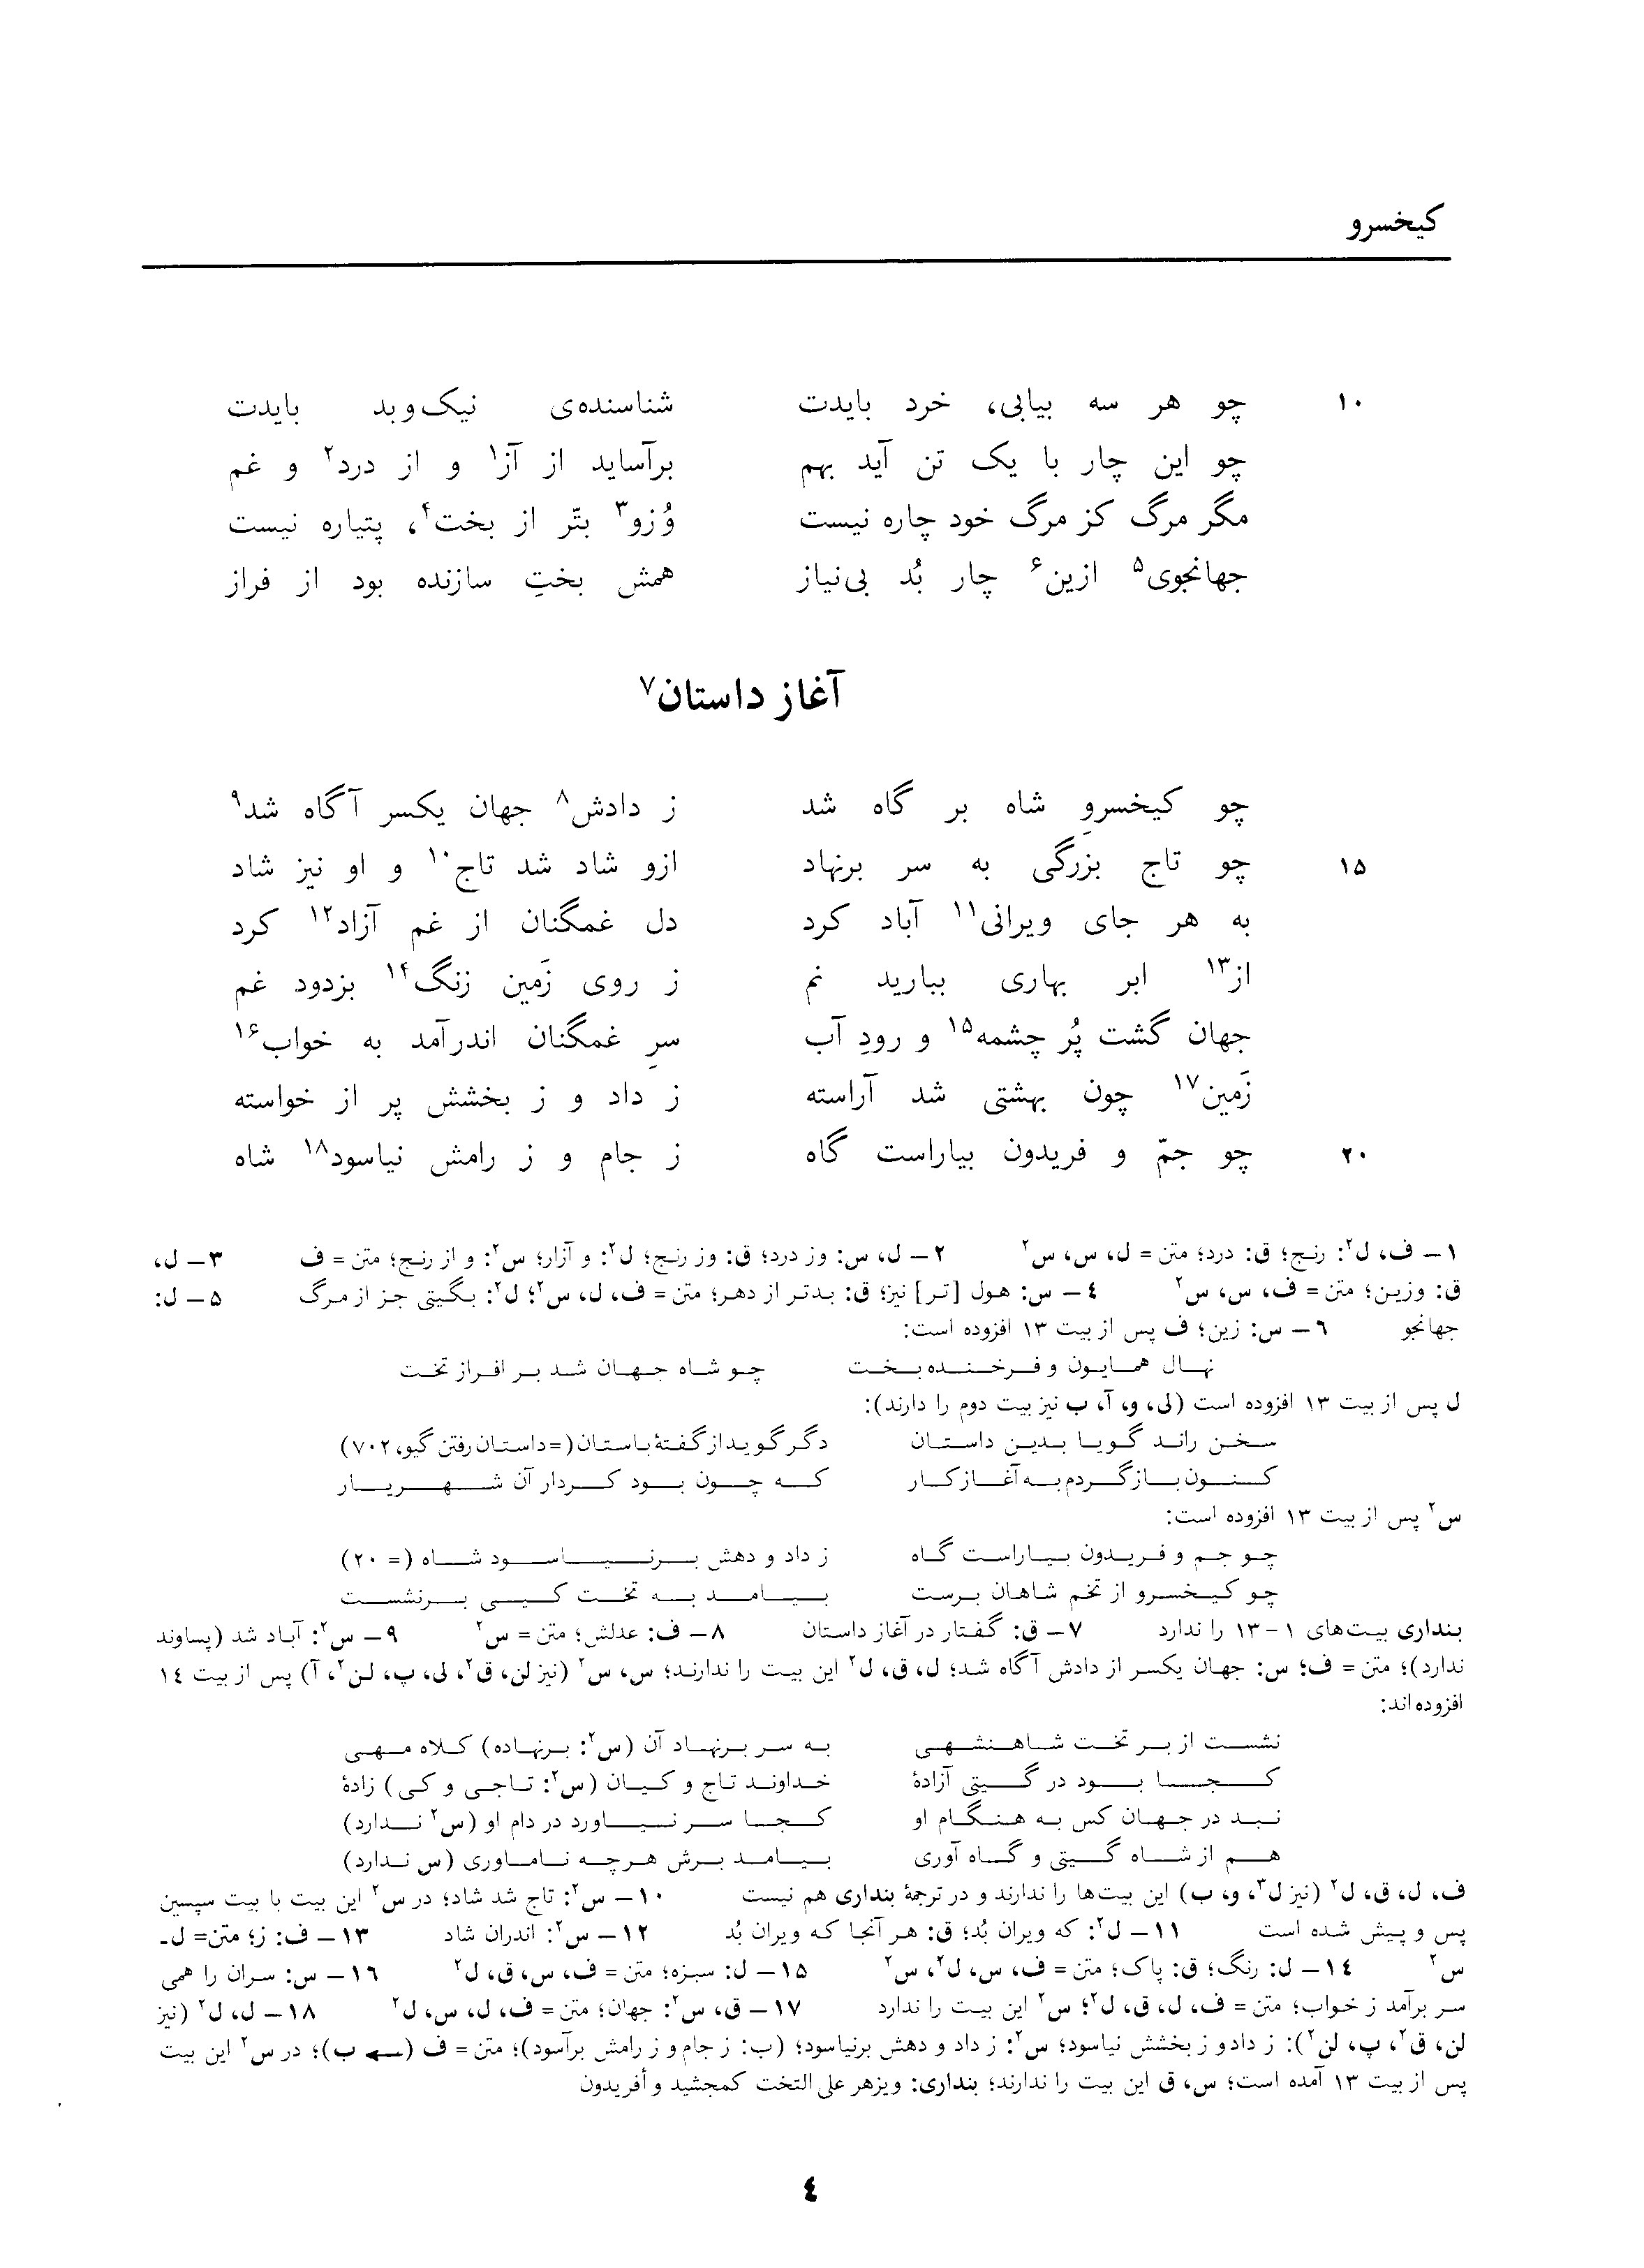 کیخسرو
۱۰ چو هر سه بیابی، خرد بایدت شناسنده‌ی نیک‌وبد بایدت
چو این چار با یک تن آید بهم برآساید از آز۱ و از درد۲ و غم
مگر مرگ کز مرگ خود چاره نیست وُزو۳ بتّر از بخت۴، پتیاره نیست
جهانجوی۵ ازین۶ چار بُد بی‌نیاز همش بختِ سازنده بود از فراز
آغاز داستان۷
چو کیخسروِ شاه بر گاه شد ز دادش۸ جهان یکسر آگاه شد۹
۱۵ چو تاج بزَرگی به سر برنهاد ازو شاد شد تاج۱۰ و او نیز شاد
به هر جای ویرانی۱۱ آباد کرد دل غمگنان از غم آزاد۱۲ کرد
از۱۳ ابر بهاری ببارید نم ز روی زَمین زنگ۱۴ بزدود غم
جهان گشت پُر چشمه۱۵ و رودِ آب سرِ غمگنان اندرآمد به خواب۱۶
زَمین۱۷ چون بهشتی شد آراسته ز داد و ز بخشش پر از خواسته
۲۰ چو جمّ و فریدون بیاراست گاه ز جام و ز رامش نیاسود۱۸ شاه
۱– ف، ل۲: رنج؛ ق: درد؛ متن = ل، س، س۲ ۲– ل، س: وز درد؛ ق: وز رنج؛ ل۲: و آزار؛ س۲: و از رنج؛ متن = ف ۳– ل،
ق: وزین؛ متن = ف، س، س۲ ٤– س: هول [تر] نیز؛ ق: بدتر از دهر؛ متن = ف، ل، س۲؛ ل۲: بگیتی جز از مرگ ۵– ل:
جهانجو ٦– س: زین؛ ف پس از بیت ۱۳ افزوده است:
نهال همایون و فرخنده بخت چو شاه جهان شد بر افراز تخت
ل پس از بیت ۱۳ افزوده است (لی، و، آ، ب نیز بیت دوم را دارند):
سخن راند گویا بدین داستان دگر گوید از گفتهٔ باستان (= داستان رفتن گیو، ۷۰۲)
کنون بازگردم به آغاز کار که چون بود کردار آن شهریار
س۲ پس از بیت ۱۳ افزوده است:
چو جم و فریدون بیاراست گاه ز داد و دهش برنیاسود شاه (= ۲۰)
چو کیخسرو از تخم شاهان برست بیامد به تخت کیی برنشست
بنداری بیت‌های ۱–۱۳ را ندارد ۷– ق: گفتار در آغاز داستان ۸– ف: عدلش؛ متن = س۲ ۹– س۲: آباد شد (پساوند
ندارد)؛ متن = ف؛ س: جهان یکسر از دادش آگاه شد؛ ل، ق، ل۲ این بیت را ندارند؛ س، س۲ (نیز لن، ق۲، لی، پ، لن۲، آ) پس از بیت ۱٤
افزوده‌اند:
نشست از بر تخت شاهنشهی به سر برنهاد آن (س۲: برنهاده) کلاه مهی
کجا بود در گیتی آزادهٔ خداوند تاج و کیان (س۲: تاجی و کی) زادهٔ
نبد در جهان کس به هنگام او کجا سر نیاورد در دام او (س۲ ندارد)
هم از شاه گیتی و گاه آوری بیامد برش هرچه نام‌اوری (س ندارد)
ف، ل، ق، ل۲ (نیز ل۳، و، ب) این بیت‌ها را ندارند و در ترجمهٔ بنداری هم نیست ۱۰– س۲: تاج شد شاد؛ در س۲ این بیت با بیت سپسین
پس و پیش شده است ۱۱– ل۲: که ویران بُد؛ ق: هر آنجا که ویران بُد ۱۲– س۲: اندران شاد ۱۳– ف: ز؛ متن= ل-
س۲ ۱٤– ل: رنگ؛ ق: پاک؛ متن = ف، س، ل۲، س۲ ۱۵– ل: سبزه؛ متن = ف، س، ق، ل۲ ۱٦– س: سران را همی
سر برآمد ز خواب؛ متن = ف، ل، ق، ل۲؛ س۲ این بیت را ندارد ۱۷– ق، س۲: جهان؛ متن = ف، ل، س، ل۲ ۱۸– ل، ل۲ (نیز
لن، ق۲، پ، لن۲): ز داد و ز بخشش نیاسود؛ س۲: ز داد و دهش برنیاسود؛ (ب: ز جام و ز رامش برآسود)؛ متن = ف (← ب)؛ در س۲ این بیت
پس از بیت ۱۳ آمده است؛ س، ق این بیت را ندارند؛ بنداری: ویزهر علی التخت کمجشید و أفریدون
٤